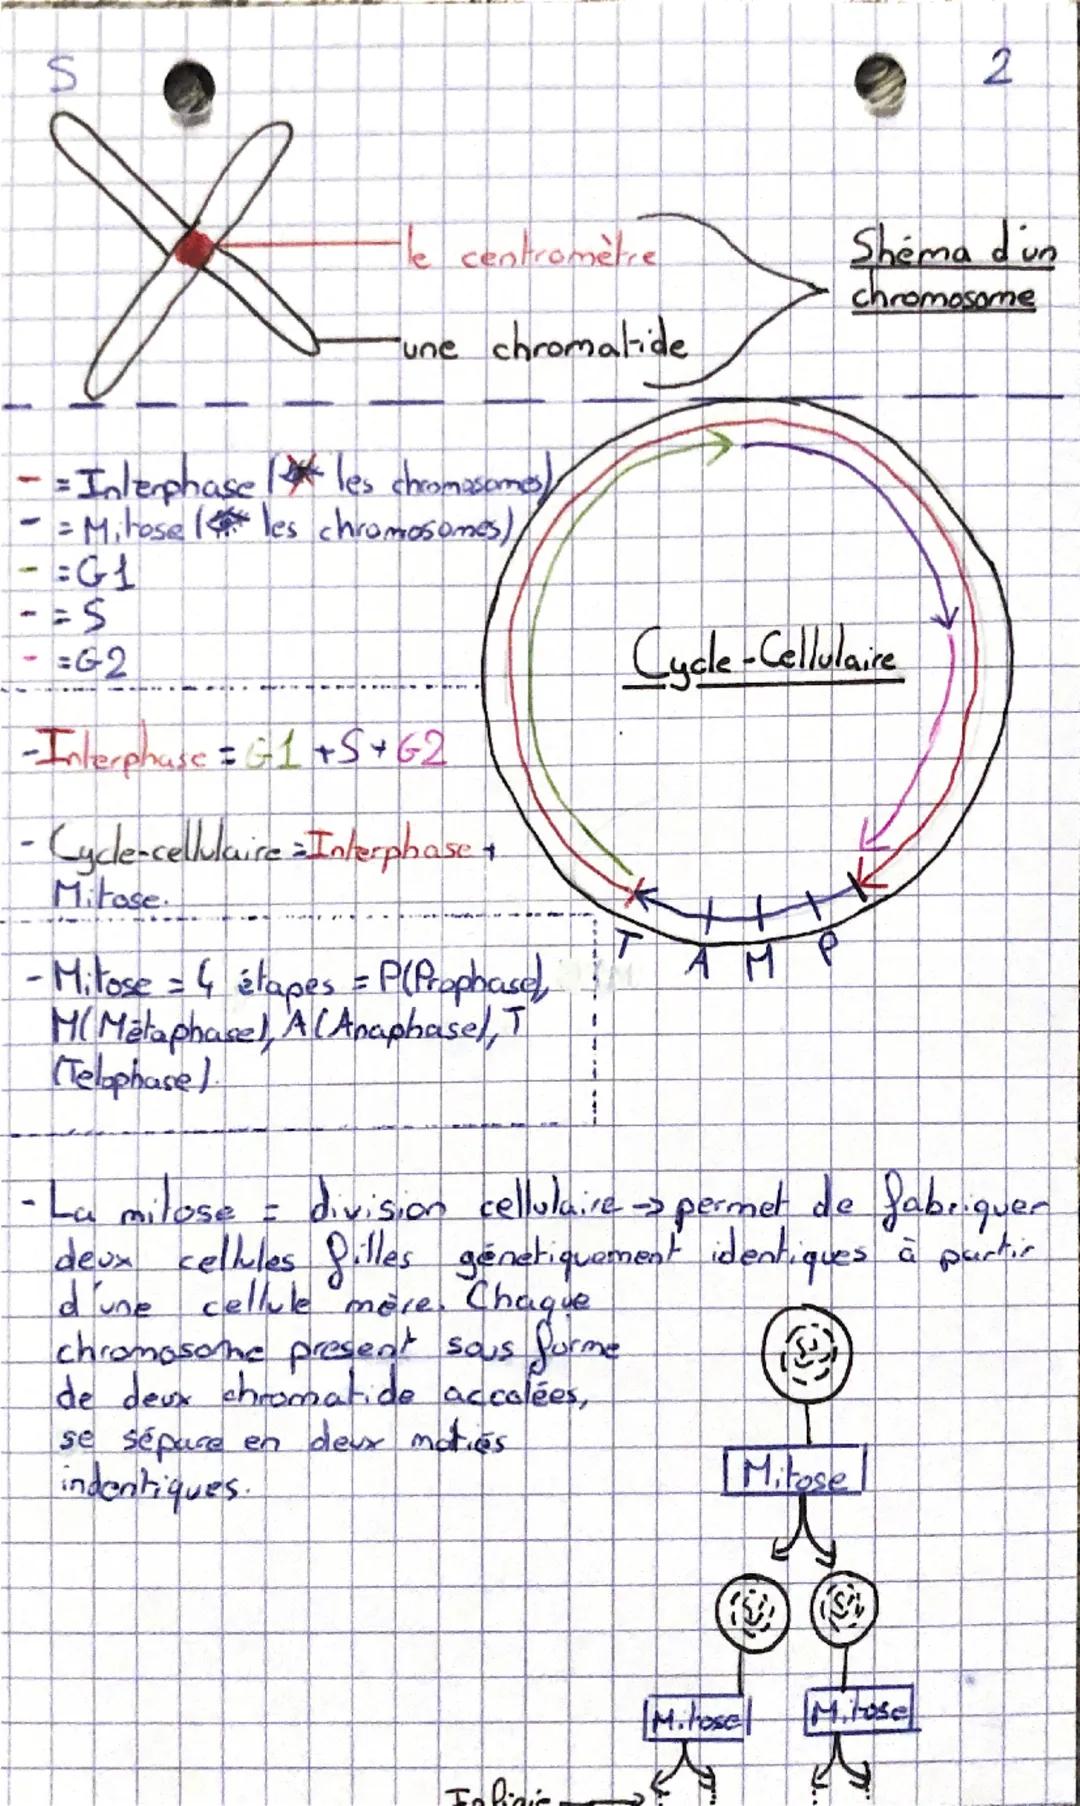 S
2
le centromètre
Shéma d'un
chromosome
une chromatide
- = Interphase ( les chromosomes)
- = Mitose ( les chromosomes)
- = G1
- = S
- = G2
Cycle-Cellulaire
- Interphase = G1 + S + G2
- Cycle-cellulaire = Interphase +
Mitose.
T A M P
- Mitose = 4 étapes = P(Prophase),
M(Métaphase), A(Anaphase), T
(Telophase).
- La mitose = division cellulaire → permet de fabriquer
deux cellules filles génétiquement identiques à partir
d'une cellule mère. Chaque
chromosome present sous forme
de deux chromatide accolées,
se sépare en deux motiés
indentiques.
Mitose
Mitose Mitose